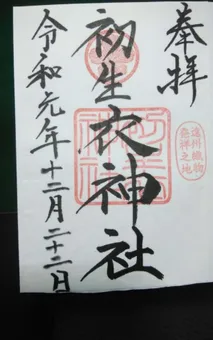 奉拝
遠州織物
発祥之地
初生衣神社
令和元年十二月二十二日